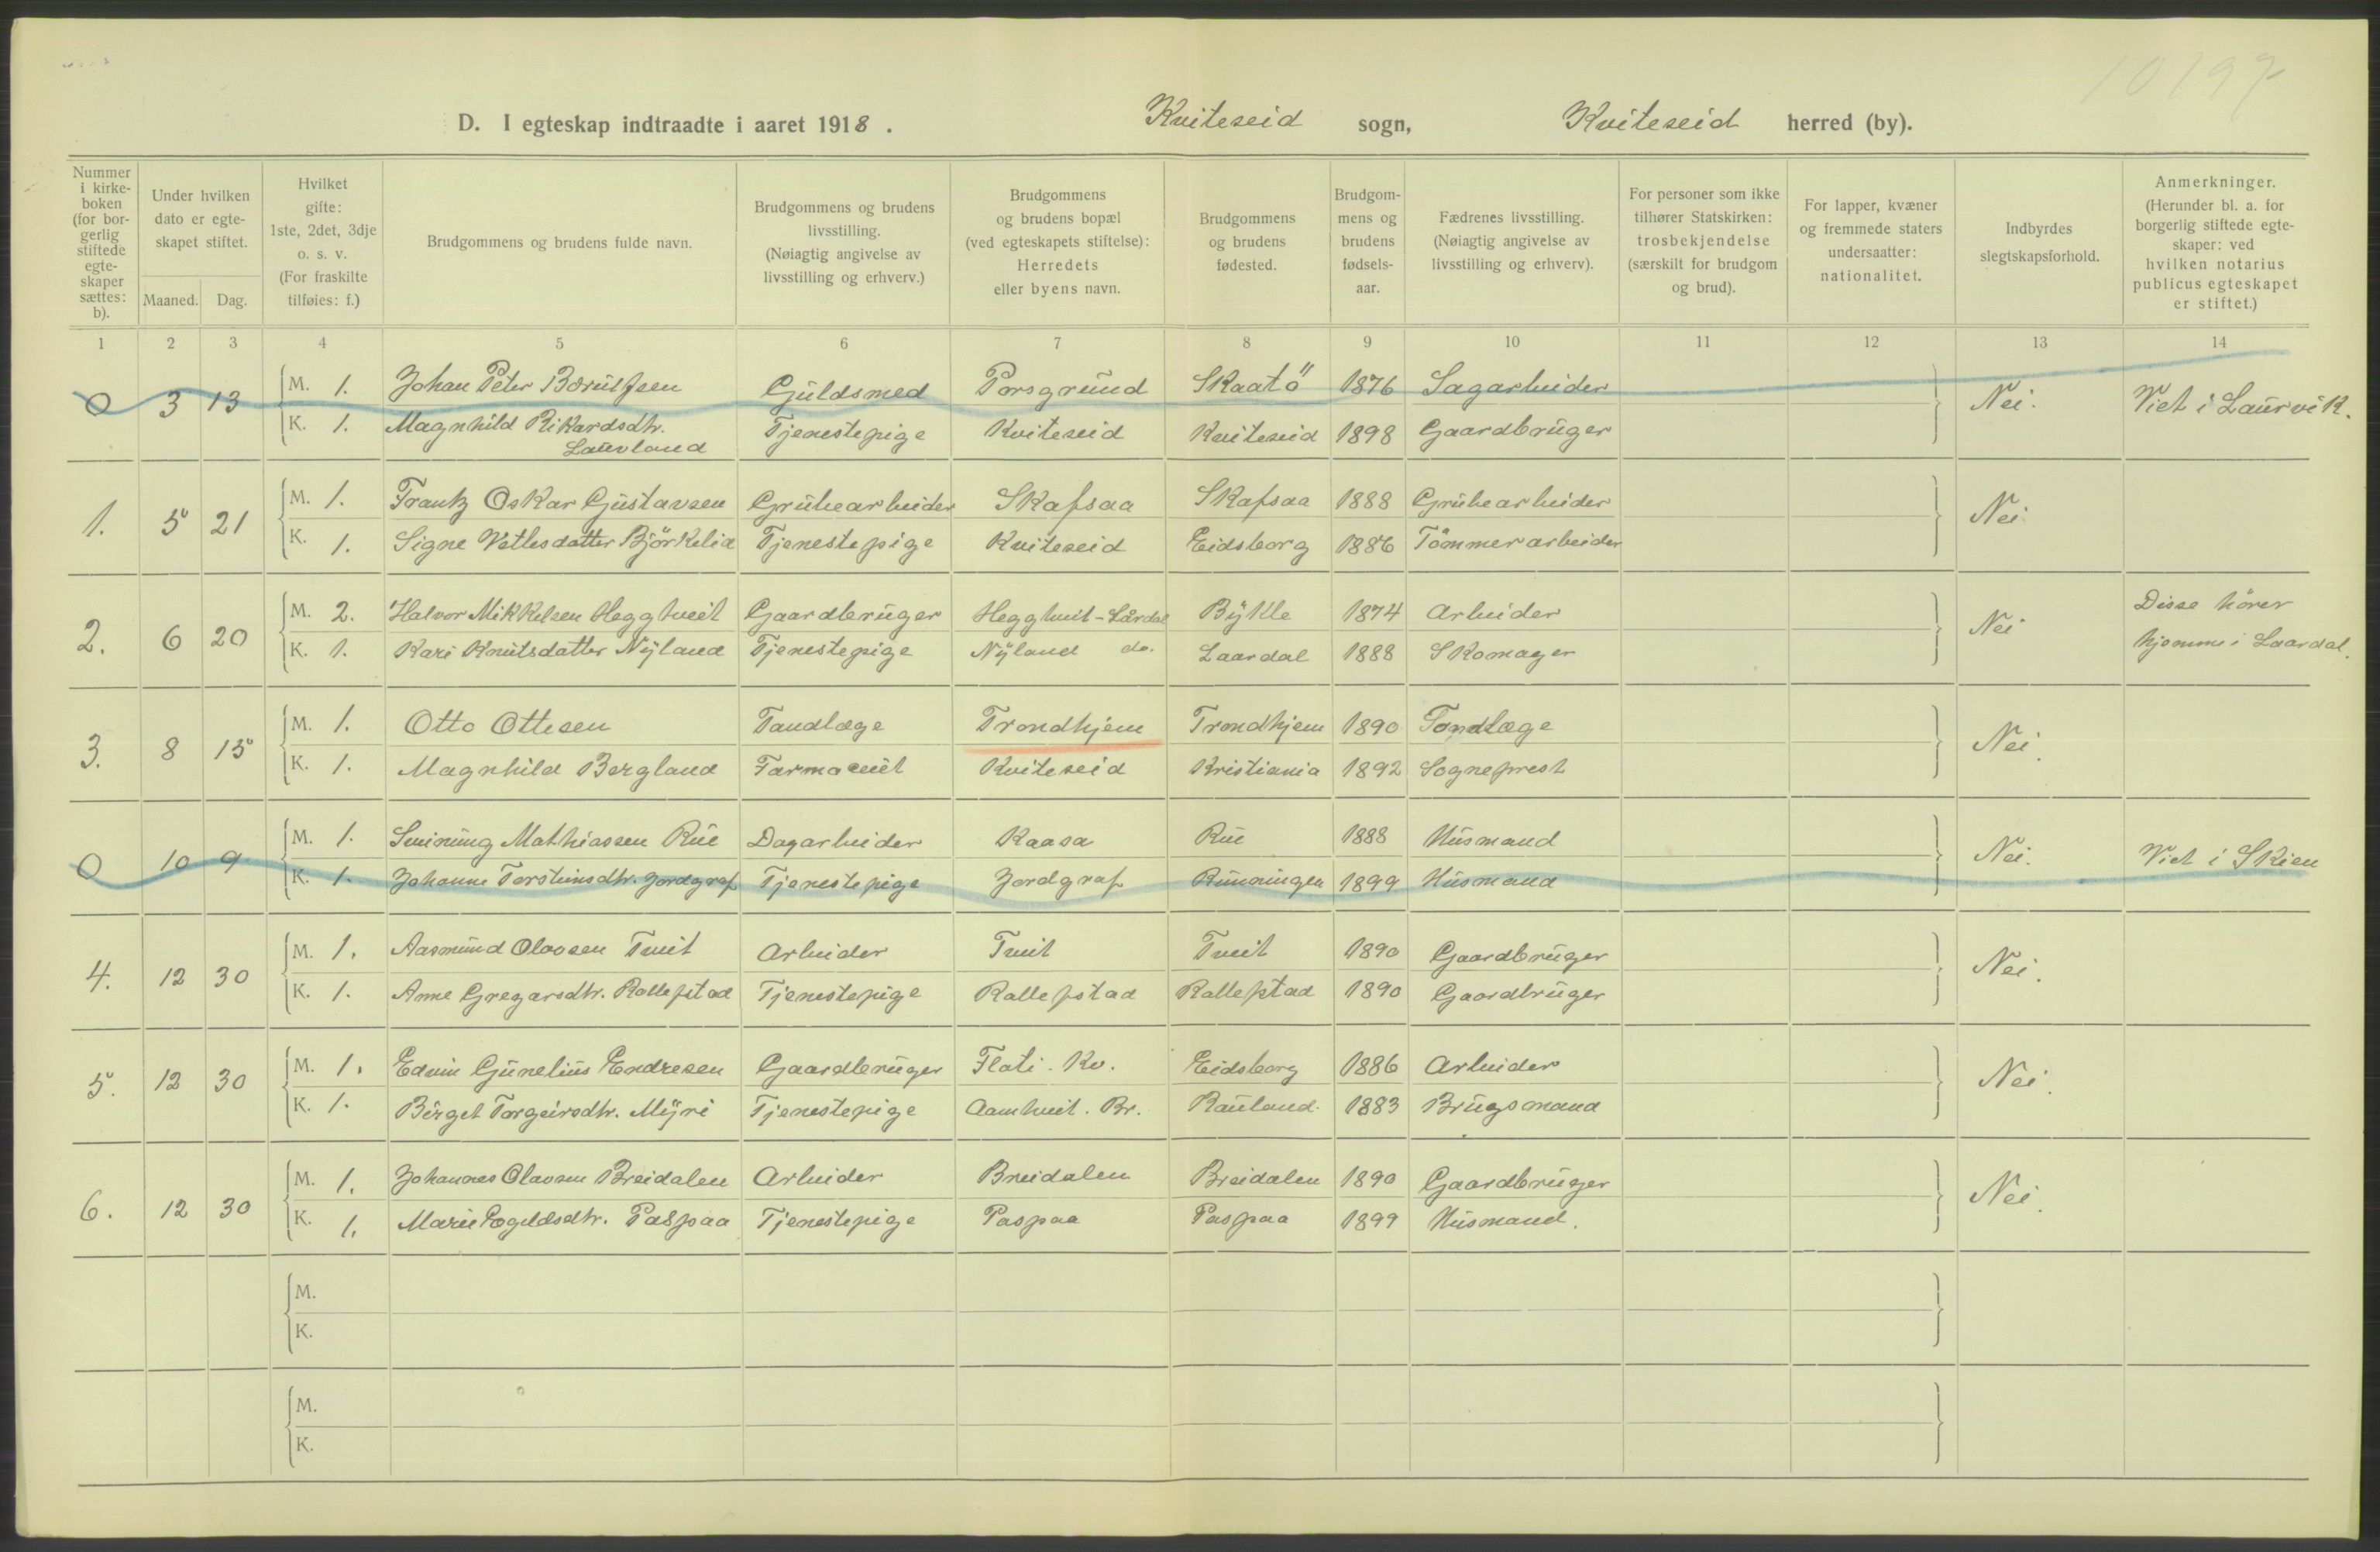 10197
D. I egteskap indtraadte i aaret 1918. Kviteseid sogn, Kviteseid herred (by).
Nummer i kirke-boken (for bor-gerlig stiftede egte-skaper sættes: b).
Under hvilken dato er egte-skapet stiftet.
Maaned. Dag.
Hvilket gifte: 1ste, 2det, 3dje o. s. v. (For fraskilte tilføies: f.)
Brudgommens og brudens fulde navn.
Brudgommens og brudens livsstilling. (Nøiagtig angivelse av livsstilling og erhverv.)
Brudgommens og brudens bopæl (ved egteskapets stiftelse): Herredets eller byens navn.
Brudgommens og brudens fødested.
Brudgom-mens og brudens fødsels-aar.
Fædrenes livsstilling. (Nøiagtig angivelse av livsstilling og erhverv).
For personer som ikke tilhører Statskirken: trosbekjendelse (særskilt for brudgom og brud).
For lapper, kvæner og fremmede staters undersaatter: nationalitet.
Indbyrdes slegtskapsforhold.
Anmerkninger. (Herunder bl. a. for borgerlig stiftede egte-skaper: ved hvilken notarius publicus egteskapet er stiftet.)
1 2 3 4 5 6 7 8 9 10 11 12 13 14
0 3 13 M. 1. Johan Peter Guldsmed Porsgrund Skaatö 1876 Sagarbeider Nei. Viet i Laurvik.
K. 1. Magnhild Rikardsdtr. Lauvland Tjenestepige Kviteseid Kviteseid 1898 Gaardbruger
1. 5 21 M. 1. Frantz Oskar Gustavsen Grubearbeider Skafsaa Skafsaa 1888 Grubearbeider Nei
K. 1. Signe Vetlesdatter Björkelid Tjenestepige Kviteseid Eidsborg 1886 Tömmerarbeider
2. 6 20 M. 2. Halvor Mikkelsen Heggtveit Gaardbruger Heggtveit - Lårdal Bykle 1874 Arbeider Nei Disse hörer
K. 1. Kari Knutsdatter Nyland Tjenestepige Nyland do. Laardal 1888 Skomager hjemme i Laardal.
3. 8 15 M. 1. Otto Ottesen Tandlæge Trondhjem Trondhjem 1890 Tandlæge Nei.
K. 1. Magnhild Bergland Farmaceut Kviteseid Kristiania 1892 Sogneprest
0 10 9 M. 1. Sveinung Mathiassen Rue Dagarbeider Kaasa Rue 1888 Husmand Nei. Viet i Skien
K. 1. Johanne Torsteinsdtr. Jordgraf Tjenestepige Jordgraf Runningen 1899 Husmand
4. 12 30 M. 1. Aasmund Olavsen Tveit Arbeider Tveit Tveit 1890 Gaardbruger Nei.
K. 1. Anne Gregarsdtr. Rallefstad Tjenestepige Rallefstad Rallefstad 1890 Gaardbruger
5. 12 30 M. 1. Edvin Gunelius Endresen Gaardbruger Flati. Kv. Eidsborg 1886 Arbeider Nei.
K. 1. Birget Torgeirsdtr. Myri Tjenestepige Aamtveit. Br. Rauland. 1883 Brugsmand
6. 12 30 M. 1. Johannes Olavsen Breidalen Arbeider Breidalen Breidalen 1890 Gaardbruger Nei.
K. 1. Marie Paspaa Tjenestepige Paspaa Paspaa 1899 Husmand.
M.
K.
M.
K.